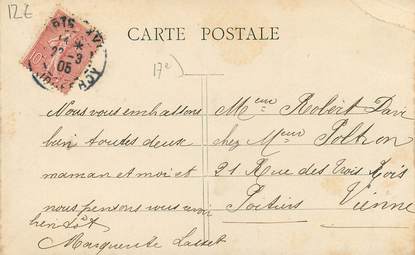 12E
CARTE POSTALE
17e
22-3
05
Nous vous embrassons
bien toutes deux
maman et moi et
nous pensons vous avoir
bientôt
Marguerite
Meur Robert
chez Meur Poltron
21 Rue des Trois Rois
Poitiers Vienne